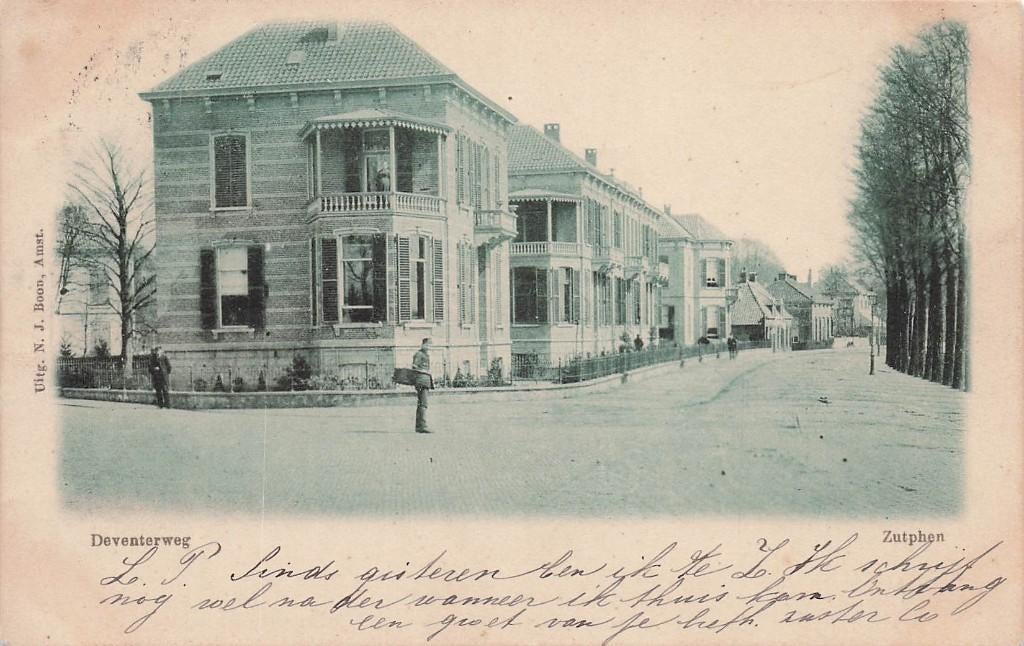 Uitg. N. J. Boon, Amst.
Deventerweg
Zutphen
L. P. Sinds gisteren ben ik te Z. Ik schrijf
nog wel nader wanneer ik thuis kom. Ontvang
een groet van je liefh. zuster Co